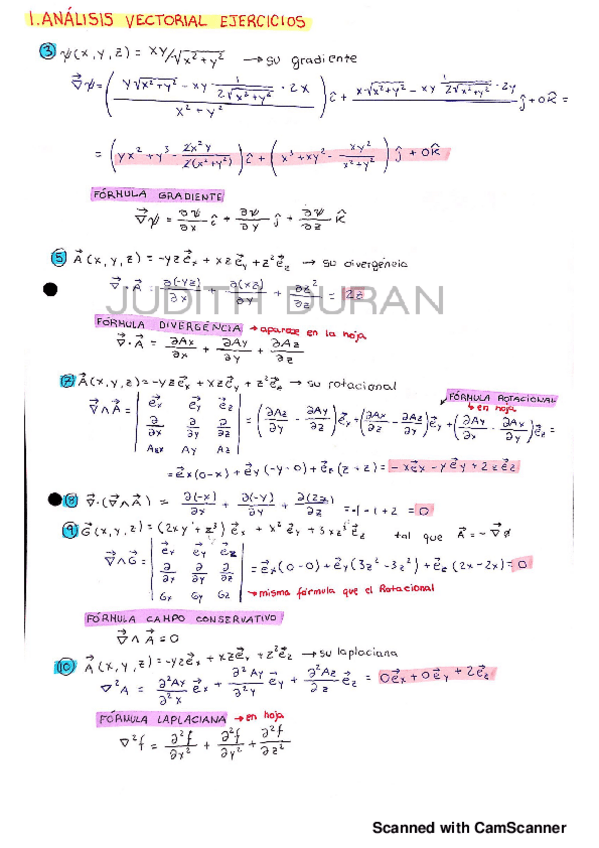 1. ANÁLISIS VECTORIAL EJERCICIOS
③ ψ(x,y,z) = xy/√(x²+y²) → su gradiente
∇ψ = ( (y√(x²+y²) - xy 1/(2√(x²+y²)) · 2x) / (x²+y²) ) î + (x√(x²+y²) - xy 1/(2√(x²+y²)) · 2y) ĵ + 0k̂ =
= (yx² + y³ - 2x²y/(2(x²+y²))) î + (x³ + xy² - xy²/(x²+y²)) ĵ + 0k̂
FÓRMULA GRADIENTE
∇ψ = ∂ψ/∂x î + ∂ψ/∂y ĵ + ∂ψ/∂z k̂
⑤ A(x,y,z) = -yz e_x + xz e_y + z² e_z → su divergéncia
∇·A = ∂(-yz)/∂x + ∂(xz)/∂y + ∂z²/∂z = 2z
JUDITH DURAN
FÓRMULA DIVERGÉNCIA → aparece en la hoja
∇·A = ∂Ax/∂x + ∂Ay/∂y + ∂Az/∂z
⑦ A(x,y,z) = -yz e_x + xz e_y + z² e_z → su rotacional
FÓRMULA ROTACIONAL
↳ en hoja
∇∧A = | e_x e_y e_z ; ∂/∂x ∂/∂y ∂/∂z ; Ax Ay Az | = (∂Az/∂y - ∂Ay/∂z) e_x + (∂Ax/∂z - ∂Az/∂x) e_y + (∂Ay/∂x - ∂Ax/∂y) e_z =
= e_x(0-x) + e_y(-y-0) + e_z(z+z) = -x e_x - y e_y + 2z e_z
⑧ ∇·(∇∧A) = ∂(-x)/∂x + ∂(-y)/∂y + ∂(2z)/∂z = -1-1+2 = 0
⑨ G(x,y,z) = (2xy + z³) e_x + x² e_y + 3xz² e_z tal que A = -∇φ
∇∧G = | e_x e_y e_z ; ∂/∂x ∂/∂y ∂/∂z ; Gx Gy Gz | = e_x(0-0) + e_y(3z²-3z²) + e_z(2x-2x) = 0
→ misma fórmula que el Rotacional
FÓRMULA CAMPO CONSERVATIVO
∇∧A = 0
⑩ A(x,y,z) = -yz e_x + xz e_y + z² e_z → su laplaciana
∇²A = ∂²Ax/∂²x e_x + ∂²Ay/∂²y e_y + ∂²Az/∂z e_z = 0e_x + 0e_y + 2e_z
FÓRMULA LAPLACIANA → en hoja
∇²f = ∂²f/∂x² + ∂²f/∂y² + ∂²f/∂z²
Scanned with CamScanner